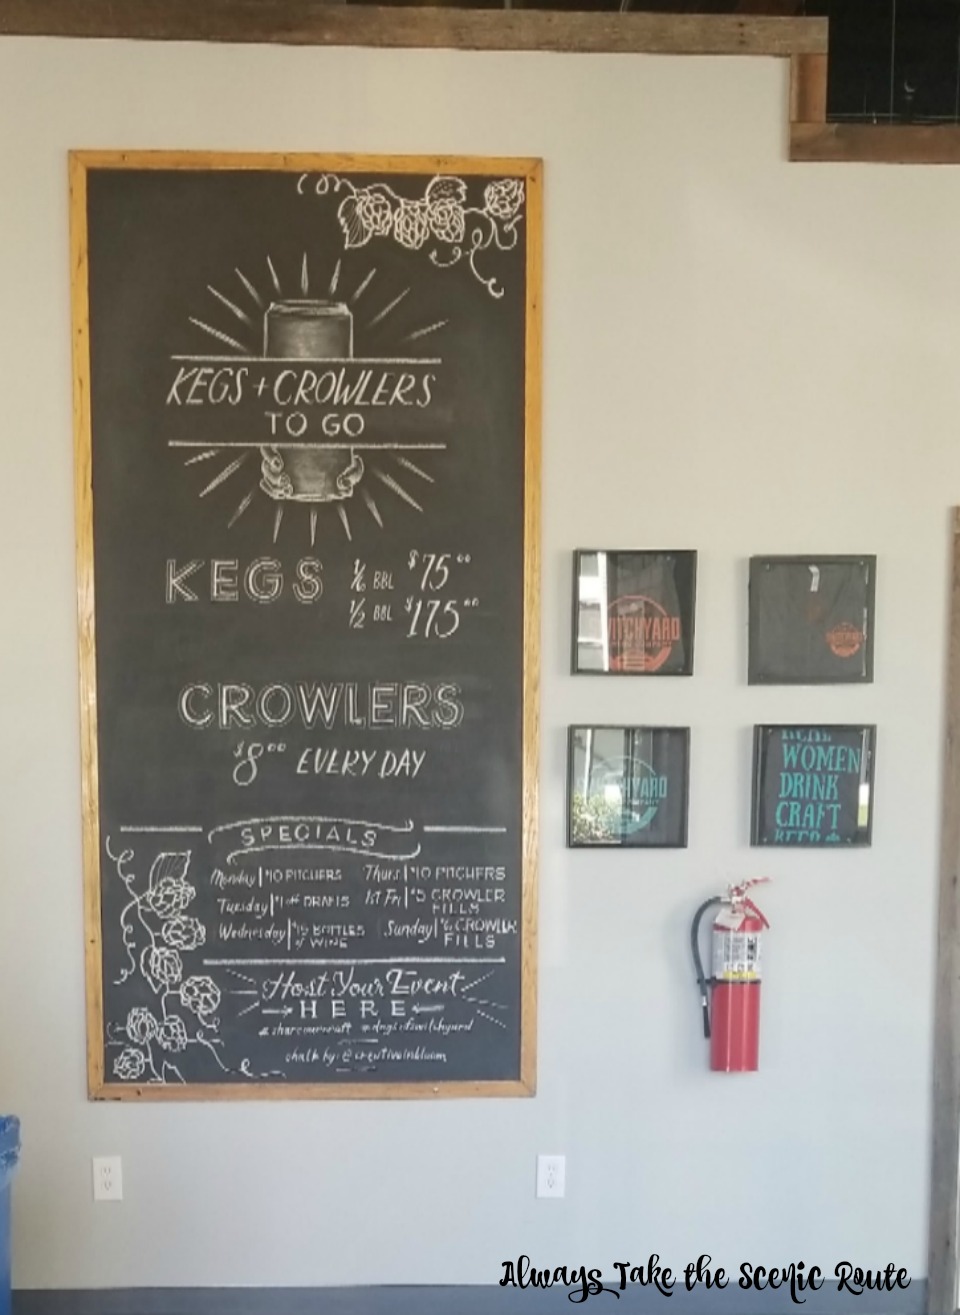 KEGS + CROWLERS
TO GO
KEGS 1/6 BBL $75.00
1/2 BBL $175.00
CROWLERS
$8.00 EVERY DAY
SPECIALS
Monday | $10 PITCHERS
Tuesday | $1 off DRAFTS
Wednesday | $15 BOTTLES
OF WINE
Thurs | $10 PITCHERS
1st Fri | $5 CROWLER
FILLS
Sunday | $6 CROWLER
FILLS
Host Your Event
HERE
#sharecurcraft #dogsofswitchyard
chalk by: @creativeinbloom
ITCHYARD
REAL
WOMEN
DRINK
CRAFT
BEER
Always Take the Scenic Route